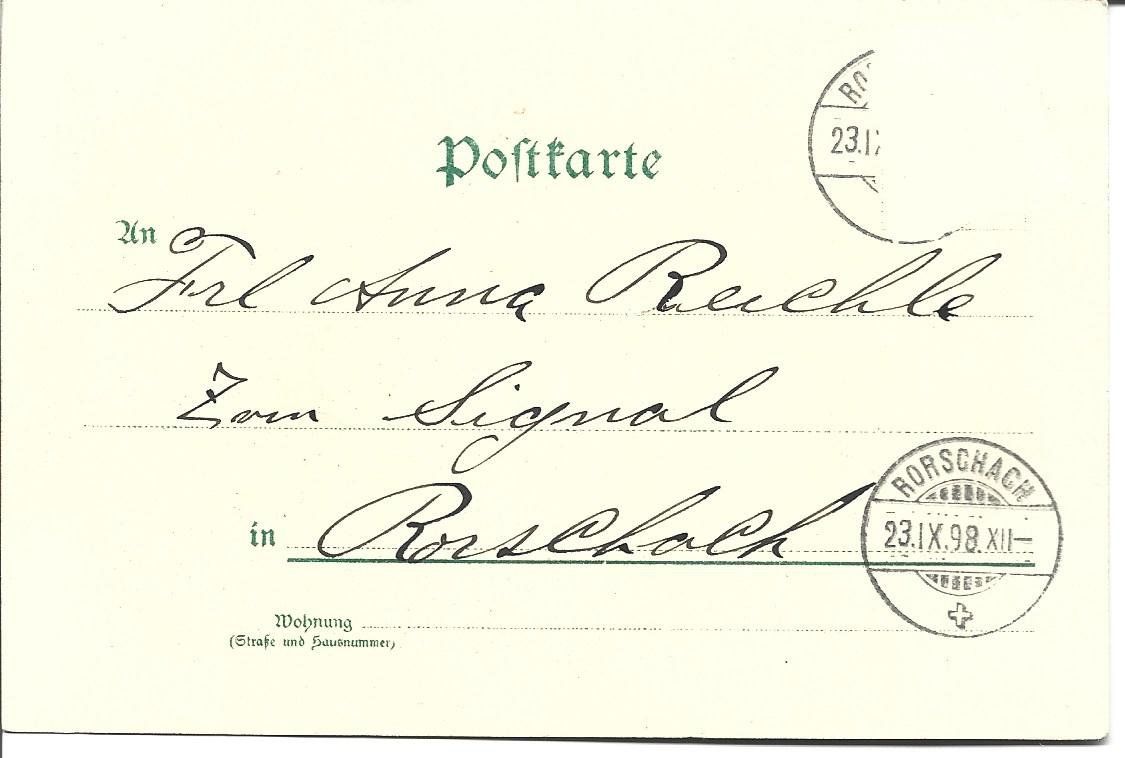 RO
23.IX
Postkarte
An
Frl Anna Reichle
Zum Signal
in Rorschach
RORSCHACH
23.IX.98.XII–
Wohnung
(Straße und Hausnummer)